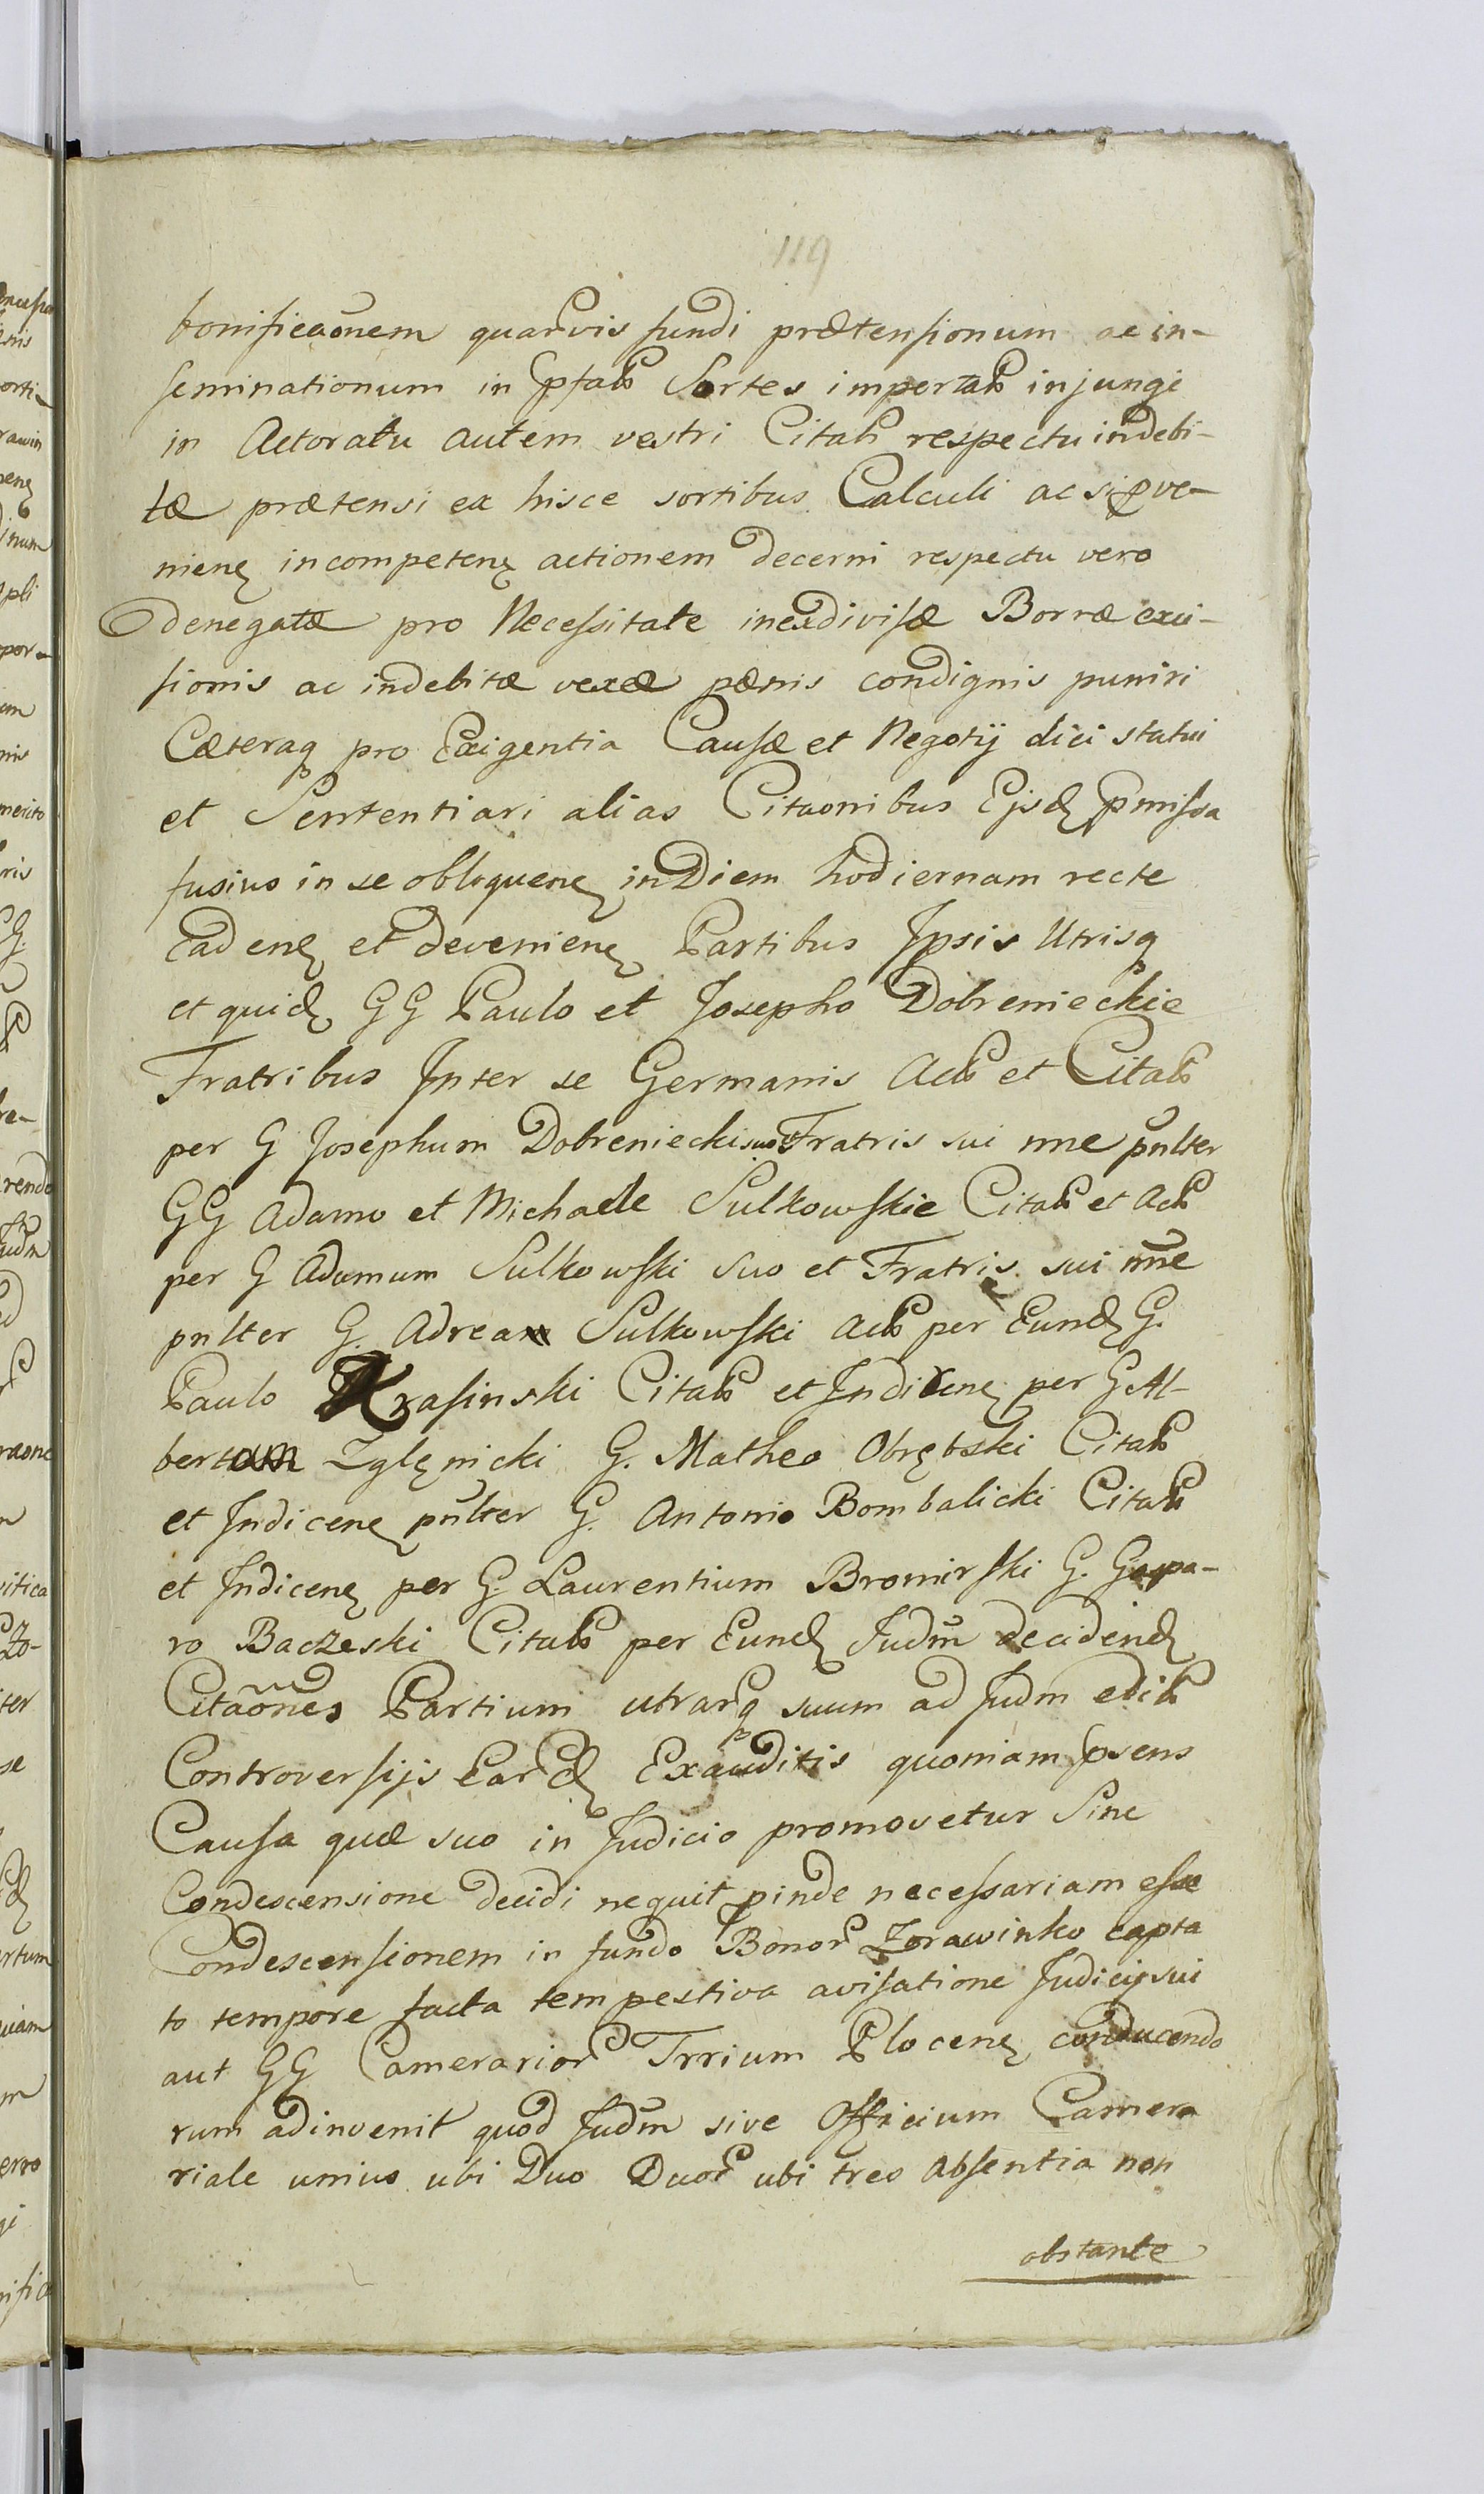 119
bonificaõnem quarvis fundi prætensionum ac in-
seminationum in pſatis Sortes impertatis injungi
in Actoratu autem vestri Citatis respectu indebi-
tæ prætensi ex hisce sortibus Calculi ac si pve-
nienę incompetenę actionem decerni respectu vero
denegatæ pro Necessitate inexdivisæ Borræ exci-
sionis ac indebitæ vexæ pænis condignis puniri
Cæteraq pro Exigentia Causæ et Negotij dici statui
et Sententiari alias Citaonibus Ejsd pmissa
fusius in se obloquenę in Diem hodiernam recte
Cadenę et devenienę Partibus Ipsis Utrisq
et quid GG Paulo et Josepho Dobrenieckie
Fratribus Inter se Germanis Actis et Citatis
per G Josephum Dobreniecki suo et Fratris sui nne pnlter
GG Adamo et Michaele Sulkowskie Citatis et Actis
per G Adamum Sulkowski suo et Fratris sui nne
pnlter G. Adrean Sulkowski Actis per Eund G.
Paulo Krasinski Citatis et Indicenę per G Al-
bertum Zglęnicki G. Matheo Obrębski Citatis
et Indicenę pnlter G. Antonio Bombalicki Citatis
et Indicenę per G. Laurentium Bromirski G. Gaspa-
ro Baczeski Citatis per Eund Judm decidend
Citaões Partium utrarq suum ad Judm editis
Controversijs Eard Exauditis quoniam psens
Causa quæ suo in Judicio promovetur Sine
Condescensione decidi nequit pinde necessariam esse
Condescensionem in fundo Bonor Zorawinko capta
to tempore facta tempestiva avisatione Judicij sui
aut GG Camerarior Trrium Plocenę conducendo
rum adinvenit quod Judm sive Officium Camera
riale unius ubi Duo Duor ubi tres Absentia non
obstante